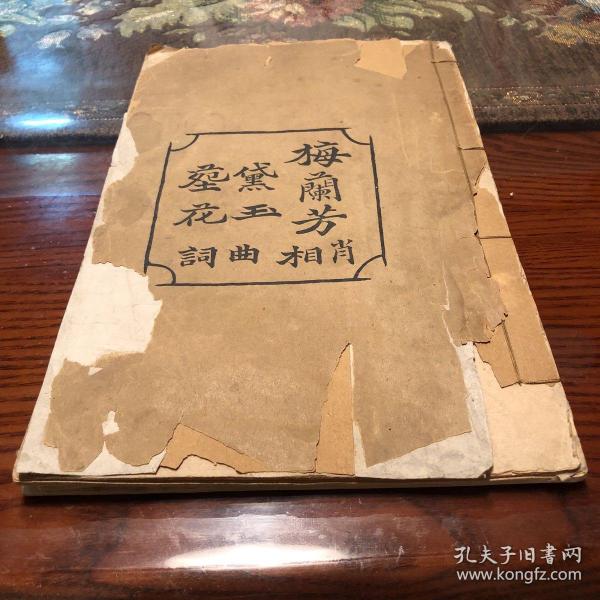 梅蘭芳肖相
黛玉曲
塟花詞
孔夫子旧書网
www.kongfz.com